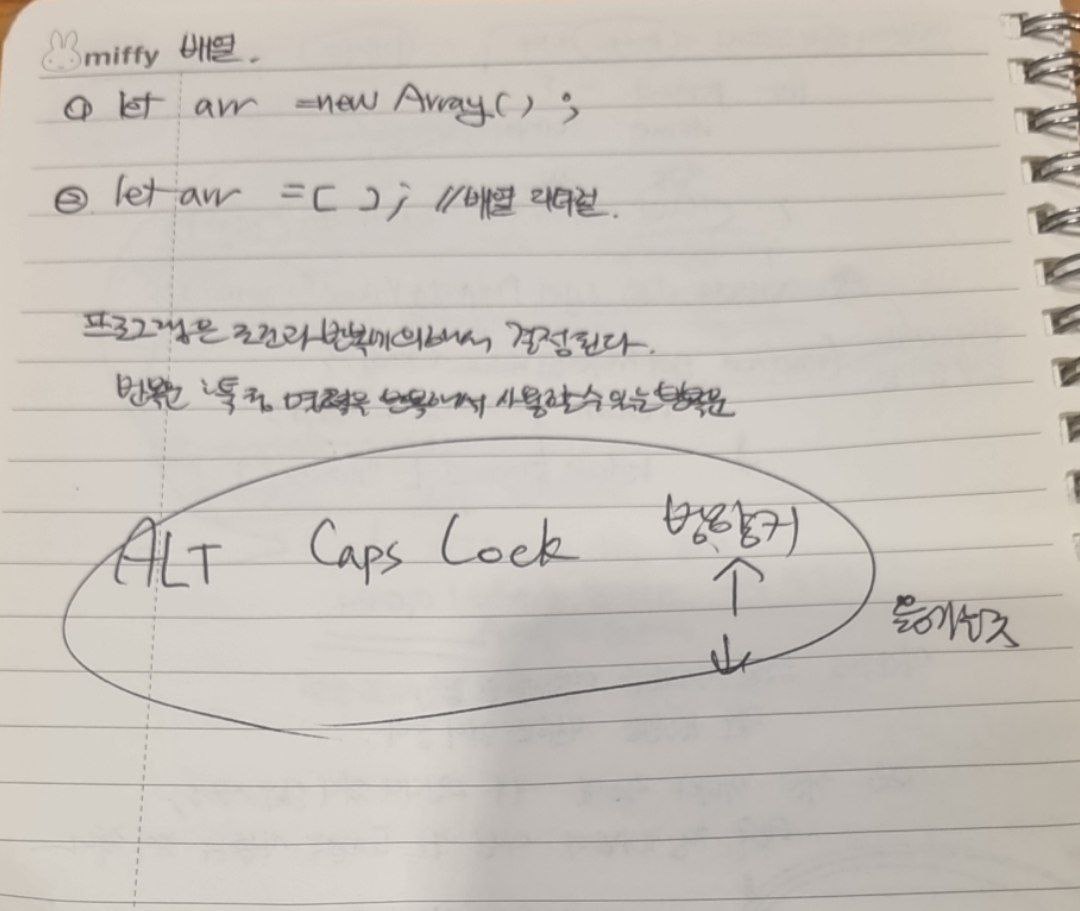 miffy 배열.
① let arr = new Array();
② let arr = [ ]; //배열 리터럴.
프로그램은 조건과 반복에의해서 결정된다.
반복문 특정 명령을 반복해서 사용할수 있는 반복문
ALT Caps Lock 방향키
↑
↓